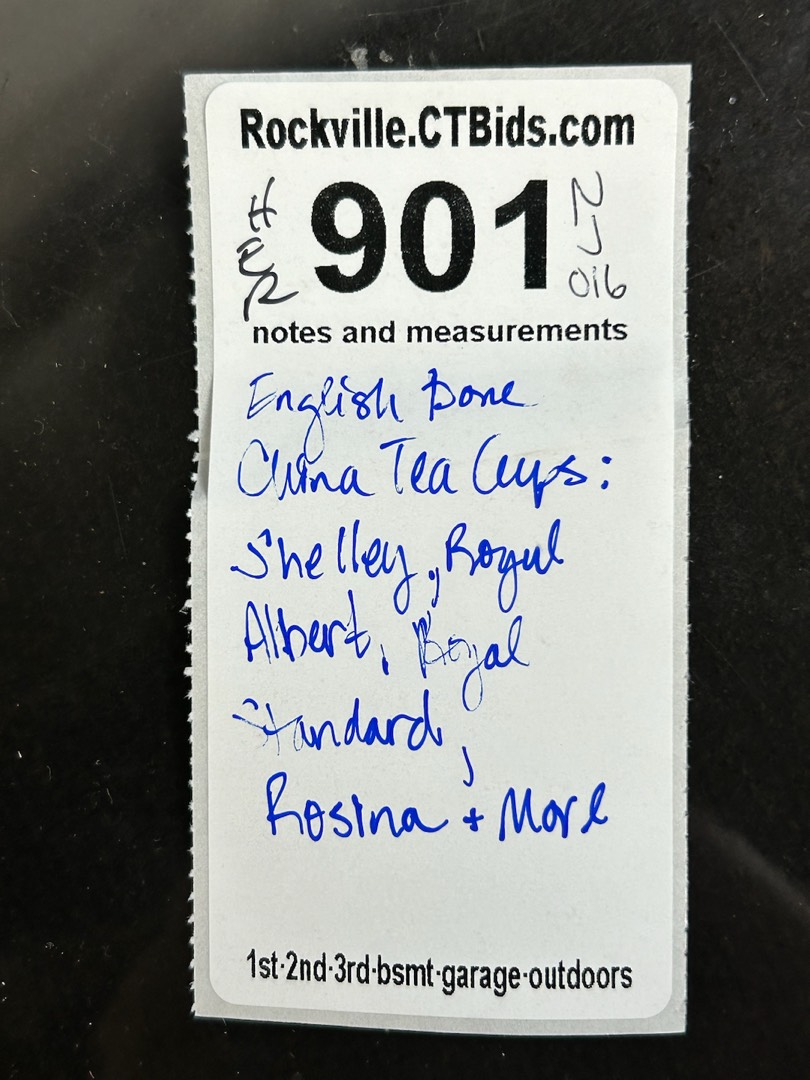 Rockville.CTBids.com
HER 901 NJ 016
notes and measurements
English Bone
China Tea Cups:
Shelley, Royal
Albert, Royal
Standard,
Rosina + More
1st·2nd·3rd·bsmt·garage·outdoors